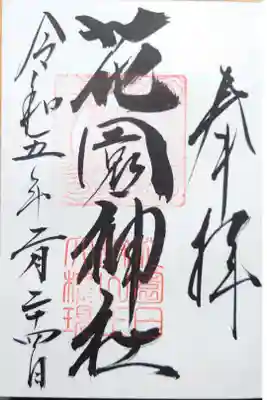 奉拝
花園神社
令和五年二月二十四日